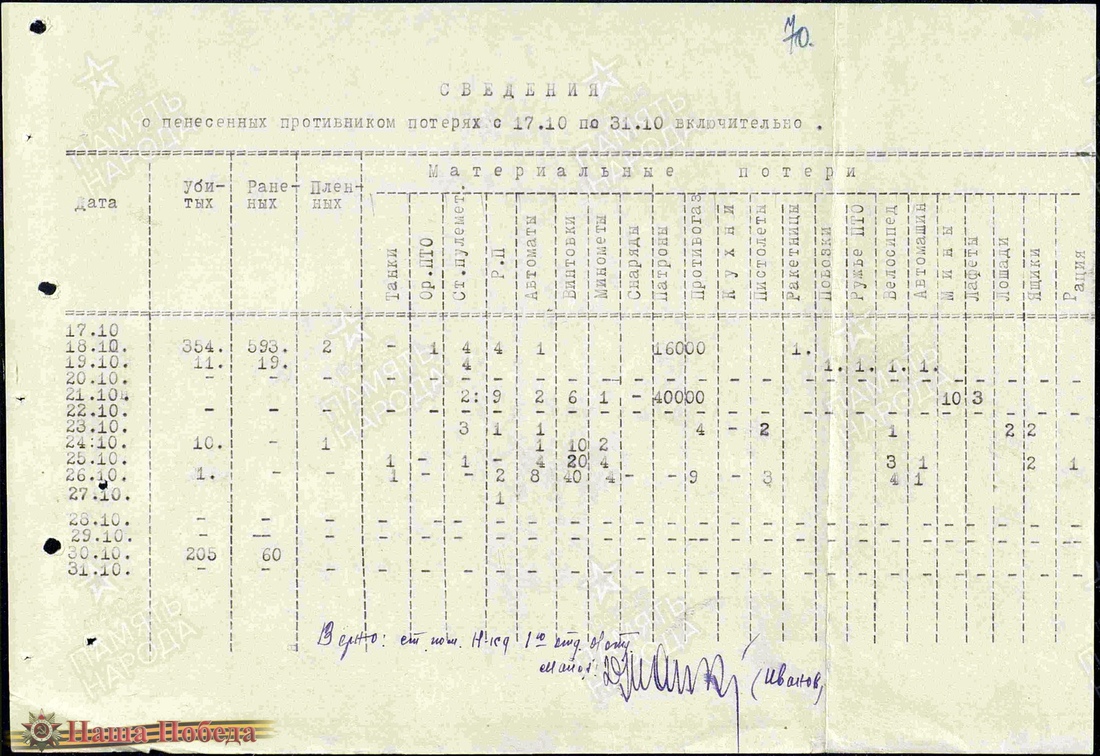 70.
СВЕДЕНИЯ
о пенесенных противником потерях с 17.10 по 31.10 включительно .
Дата Уби-тых Ране-ных Плен-ных Материальные потери
Танки Ор.ПТО Ст.пулемет. Р.П Автоматы Винтовки Минометы Снаряды Патроны Противогаз Кухни Пистолеты Ракетницы Повозки Ружье ПТО Велосипед Автомашин Мины Лафеты Лошади Ящики Рация
17.10
18.10. 354. 593. 2 - 1 4 4 1 16000 1.
19.10. 11. 19. 4 1. 1. 1. 1.
20.10. - - - - - - - - - - - - - - - - - - - - - - - - -
21.10. 2: 9 2 6 1 - 40000 10 3
22.10. - - - - - - - - - - - - - - - - - - - - - - - - -
23.10. 3 1 1 4 - 2 1 2 2
24:10. 10. - 1 1 10 2
25.10. 1 - 1 - 4 20 4 3 1 2 1
26.10. 1. - - 1 - - 2 8 40 4 - - 9 - 3 4 1
27.10. 1
28.10. - - - - - - - - - - - - - - - - - - - - - - - - -
29.10. - - - - - - - - - - - - - - - - - - - - - - - - -
30.10. 205 60
31.10. - - - - - - - - - - - - - - - - - - - - - - - - -
Верно: ст. пом. Н-ка 1го отд.
майор: (Иванов)
Наша Победа
ПАМЯТЬ НАРОДА